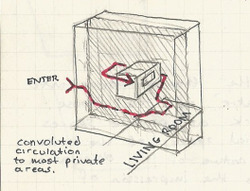 ENTER
LIVING ROOM
convoluted
circulation
to most private
areas.